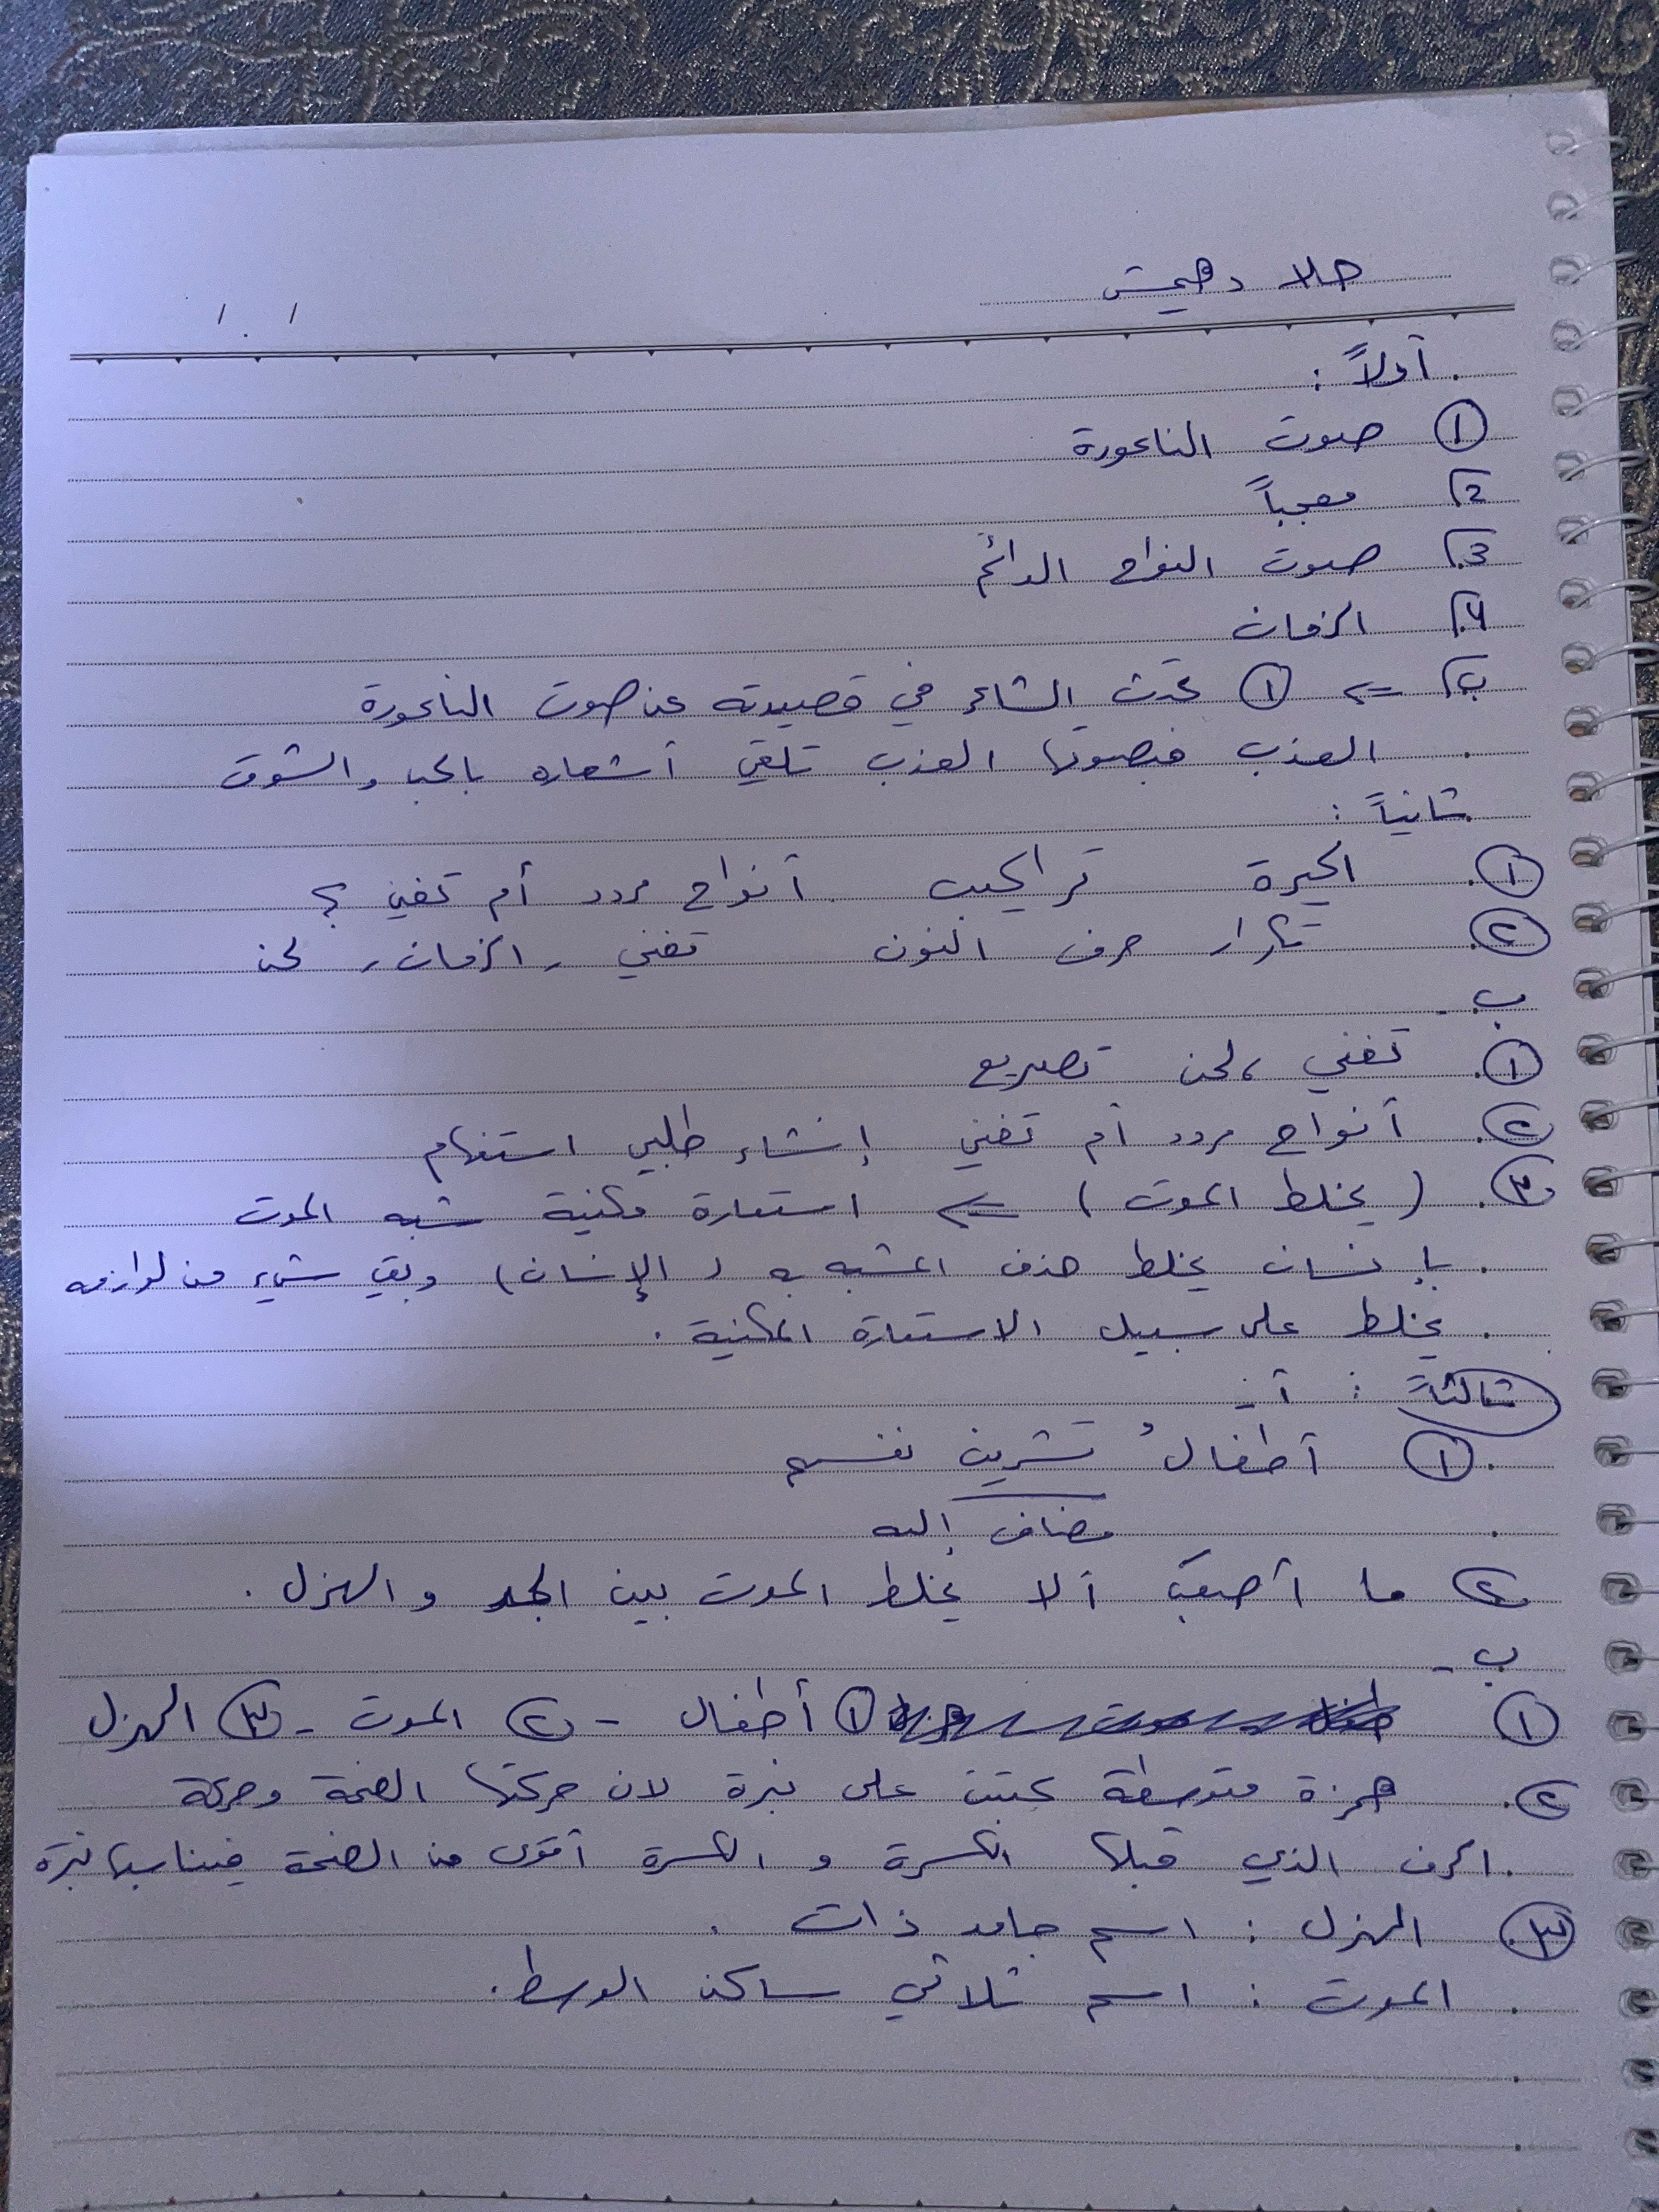 حلا دهيمش
/ . /
أولاً :
① صوت الناعورة
2) معجباً
3) صوت النواح الدائم
4) الزمان
ب) <= ① تحدث الشاعر في قصيدته عن صوت الناعورة
العذب فبصوتها العذب تلقي أشعاره بالحب والشوق
ثانياً :
① الحيرة تراكيب أنواح مردد أم تغني ؟
② تكرار حرف النون تغني , الزمان , لحن
ب -
① تغني ، لحن تصريع
② أنواح مردد أم تغني إنشاء طلبي استفهام
③ ( يخلط الموت ) <= استعارة مكنية شبه الموت
بإنسان يخلط حذف المشبه به ( الإنسان ) وبقي شيء من لوازمه
يخلط على سبيل الاستعارة المكنية .
ثالثاً : أ -
① أطفالُ تشرين نفسهم
مضاف إليه
② ما أصعبَ ألا يخلط الموت بين الجد و الهزل .
ب -
① ① أطفال - ② الموت - ③ الهزل
② همزة متوسطة كتبت على نبرة لان حركتها الضمة وحركة
الحرف الذي قبلها الكسرة و الكسرة أقوى من الضمة فيناسبها نبرة
③ الهزل : اسم جامد ذات .
الموت : اسم ثلاثي ساكن الوسط .